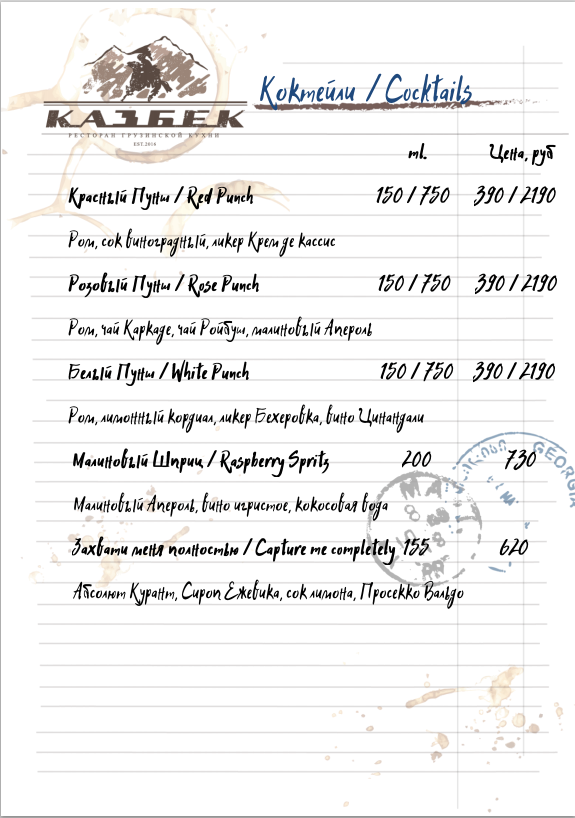 Коктейли / Cocktails
КАЗБЕК
РЕСТОРАН ГРУЗИНСКОЙ КУХНИ
EST.2016
ml. Цена, руб
Красный Пунш / Red Punch 150 / 750 390 / 2190
Ром, сок виноградный, ликер Крем де кассис
Розовый Пунш / Rose Punch 150 / 750 390 / 2190
Ром, чай Каркаде, чай Ройбуш, малиновый Апероль
Белый Пунш / White Punch 150 / 750 390 / 2190
Ром, лимонный кордиал, ликер Бехеровка, вино Цинандали
GEORGIA
Малиновый Шприц / Raspberry Spritz 200 730
Малиновый Апероль, вино игристое, кокосовая вода
Захвати меня полностью / Capture me completely 155 620
Абсолют Курант, Сироп Ежевика, сок лимона, Просекко Вальдо